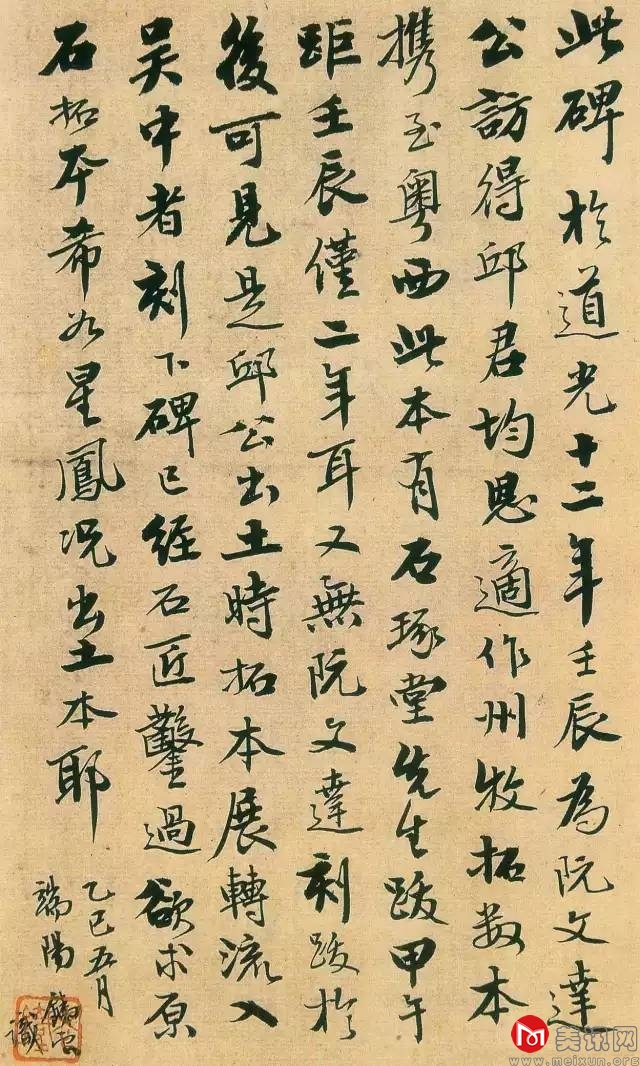 此碑於道光十二年壬辰為阮文達
公訪得邱君均恩適作州牧拓数本
携至粵西此本有石琢堂先生跋甲午
距壬辰僅二年耳又無阮文達刻跋於
後可見是邱公出土時拓本展轉流入
吴中者刻下碑已經石匠鑿過欲求原
石拓本希如星鳳况出土本耶
乙巳五月
端陽
識
美讯网
www.meixun.org